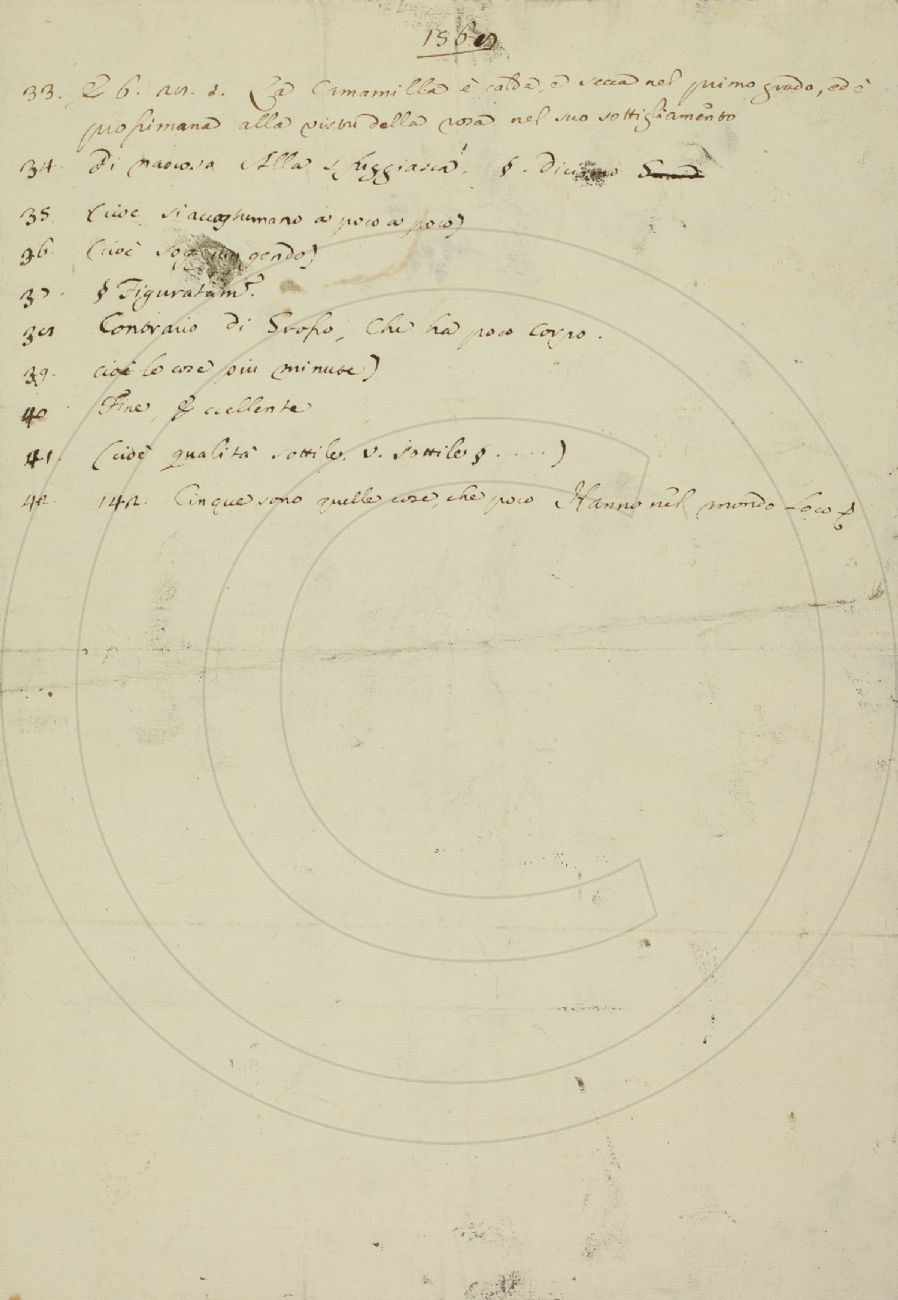 33. E 6. 22. 2. La Camamilla è calda, e secca nel primo grado, ed è
prossimana alla virtù della rosa nel suo sottigliamento
34. di nascoso Alla sfuggiasca. §. Diciamo
35. (cioè si accostumano a poco a poco)
36. (cioè soggiungendo)
37. § Figuratam.e
Contrario di Grosso, Che ha poco corpo.
39. cioè le cose più minute)
40 Fine, Eccellente
41. (cioè qualità sottile. v. sottile §.....)
42. 142. Cinque sono quelle cose, che poco Hanno nel mondo loco